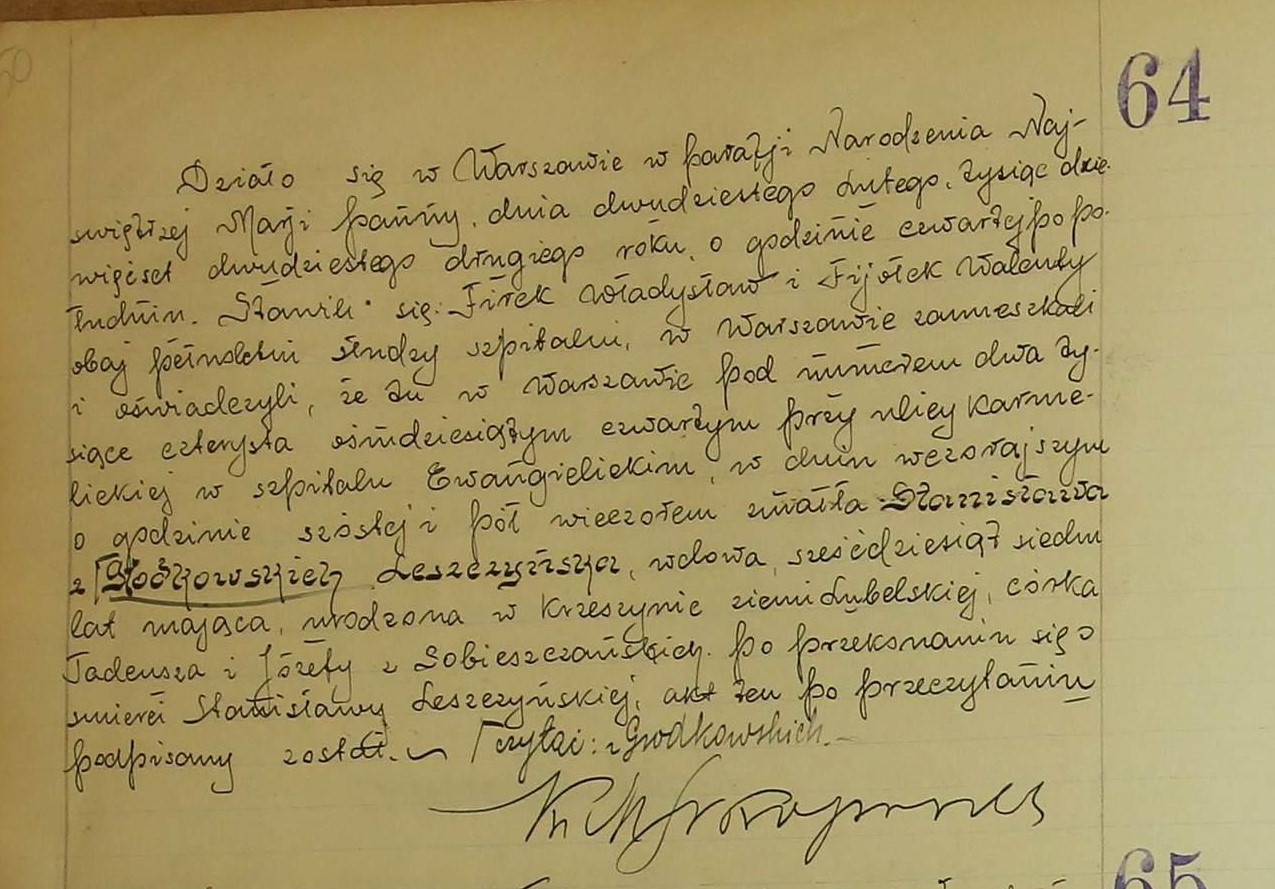 64
Działo się w Warszawie w parafji Narodzenia Naj-
swiętrzej Marji Panny, dnia dwudziestego Lutego, tysiąc dzie-
więćset dwudziestego drugiego roku, o godzinie czwartej po po-
łudniu. Stawili się: Firek Władysław i Fijołek Walenty
obaj pełnoletni słudzy szpitalni, w Warszawie zamieszkali
i oświadczyli, że tu w Warszawie pod numerem dwa ty-
siące czterysta ośmdziesiątym czwartym przy ulicy Karme-
lickiej w szpitalu Ewangielickim, w dniu wczorajszym
o godzinie szóstej i pół wieczorem zmarła Stanisława
z Leszczyńska, wdowa, sześćdziesiąt siedm
lat mająca, urodzona w Krzeszynie ziemi Lubelskiej, córka
Tadeusza i Józefy z Sobieszczańskich. Po przekonaniu się o
smierci Stanisławy Leszczyńskiej, akt ten po przeczytaniu
podpisany został. czytać: z Grodkowskich.
65